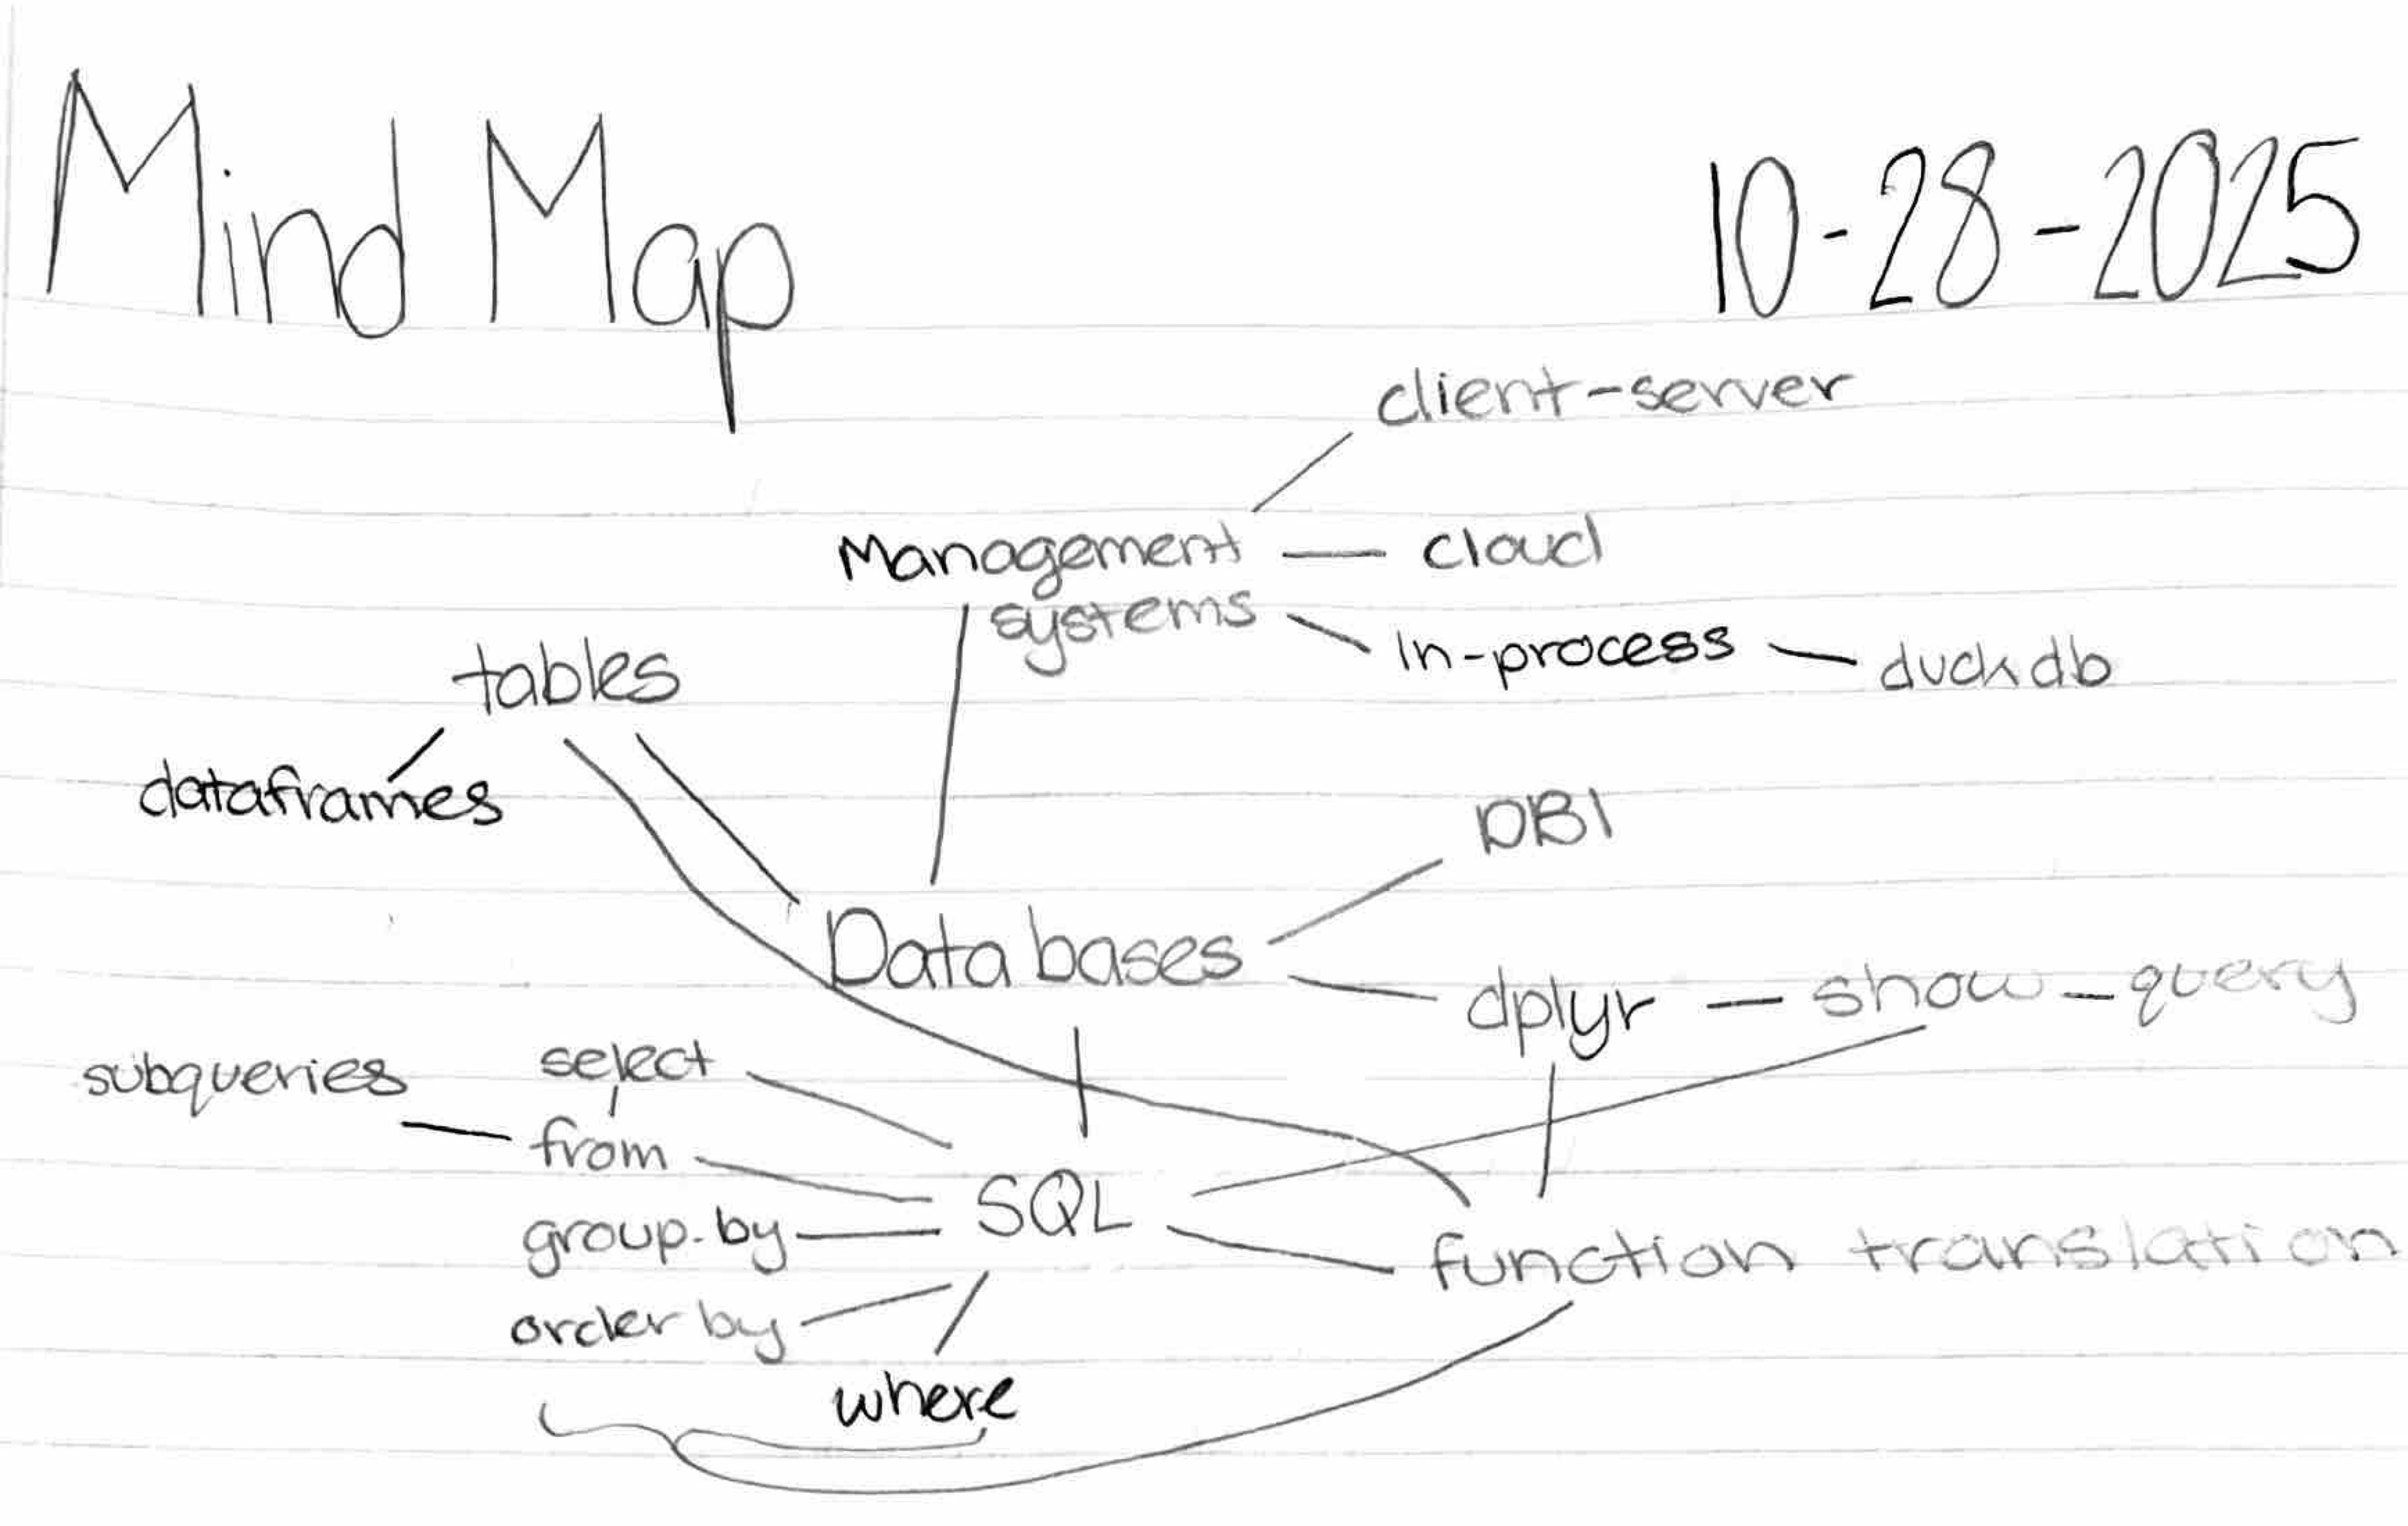 Mind Map
10-28-2025
client-server
Management
cloud
systems
in-process
duckdb
tables
dataframes
DBI
Databases
dplyr
show_query
subqueries
select
from
SQL
group-by
function translation
order by
where